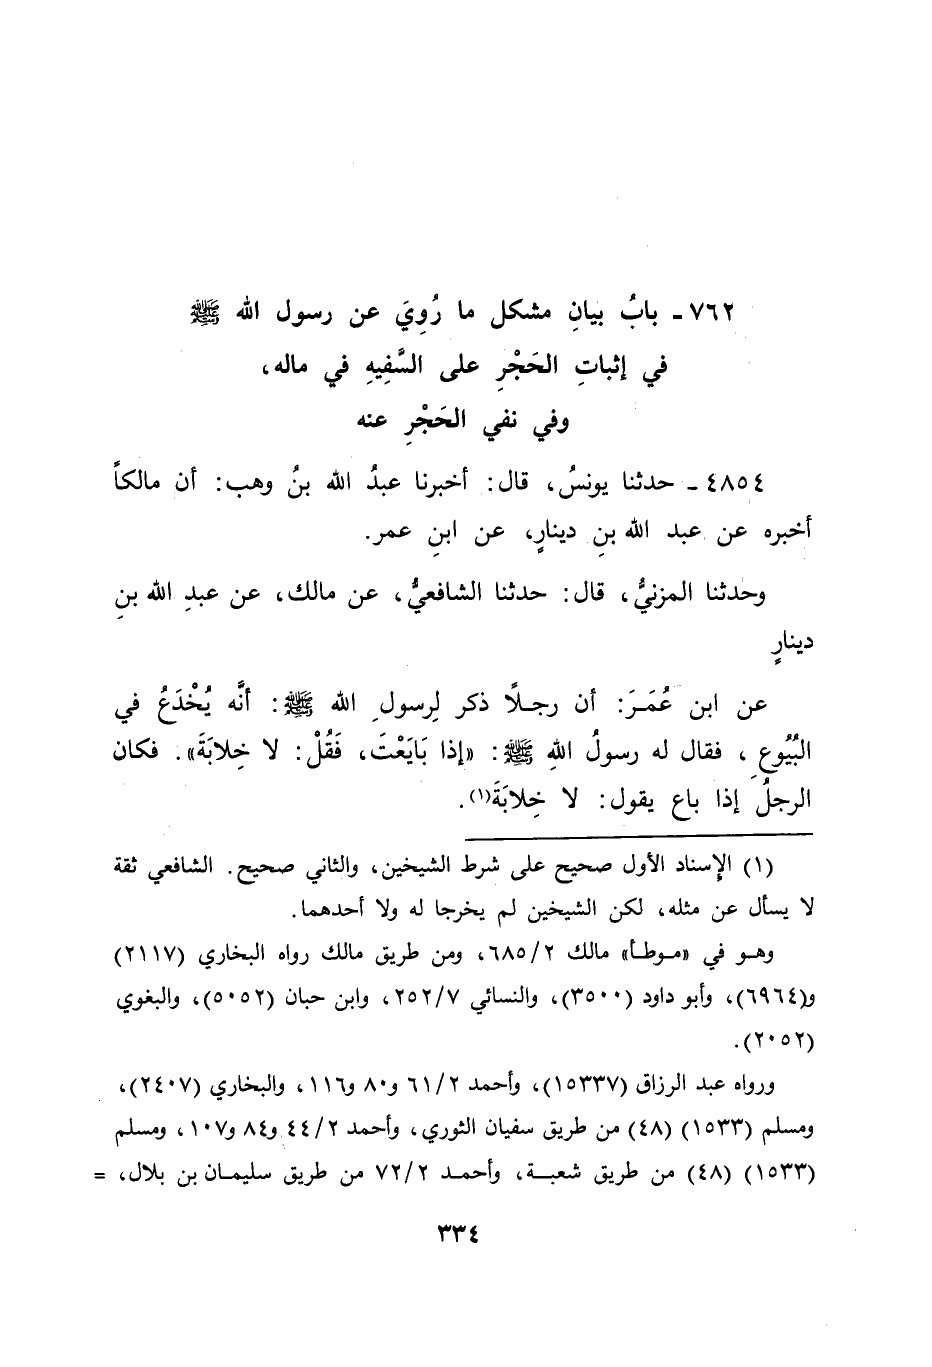 ٧٦٢ - بابُ بيانِ مشكل ما رُوِيَ عن رسول الله ﷺ
في إثباتِ الحَجْرِ على السَّفِيهِ في ماله،
وفي نفي الحَجْرِ عنه
٤٨٥٤ - حدثنا يونسُ، قال: أخبرنا عبدُ الله بنُ وهب: أن مالكاً
أخبره عن عبد الله بنِ دينارٍ، عن ابنِ عمر.
وحدثنا المزنيُّ، قال: حدثنا الشافعيُّ، عن مالك، عن عبدِ الله بنِ
دينارٍ
عن ابن عُمَـرَ: أن رجـلًا ذكر لِرسولِ الله ﷺ: أنَّه يُخْدَعُ في
البُيُوعِ، فقال له رسولُ اللهِ ﷺ: «إذا بَايَعْتَ، فَقُلْ: لا خِلابَةَ». فكان
الرجلُ إذا باع يقول: لا خِلابَةَ(١).
(١) الإسناد الأول صحيح على شرط الشيخين، والثاني صحيح. الشافعي ثقة
لا يسأل عن مثله، لكن الشيخين لم يخرجا له ولا أحدهما.
وهـو في «مـوطـأ» مالك ٦٨٥/٢، ومن طريق مالك رواه البخاري (٢١١٧)
و(٦٩٦٤)، وأبو داود (٣٥٠٠)، والنسائي ٢٥٢/٧، وابن حبان (٥٠٥٢)، والبغوي
(٢٠٥٢).
ورواه عبد الرزاق (١٥٣٣٧)، وأحمد ٦١/٢ و٨٠ و١١٦، والبخاري (٢٤٠٧)،
ومسلم (١٥٣٣) (٤٨) من طريق سفيان الثوري، وأحمد ٤٤/٢ و٨٤ و١٠٧، ومسلم
(١٥٣٣) (٤٨) من طريق شعبـة، وأحمـد ٧٢/٢ من طريق سليمـان بن بلال، =
٣٣٤